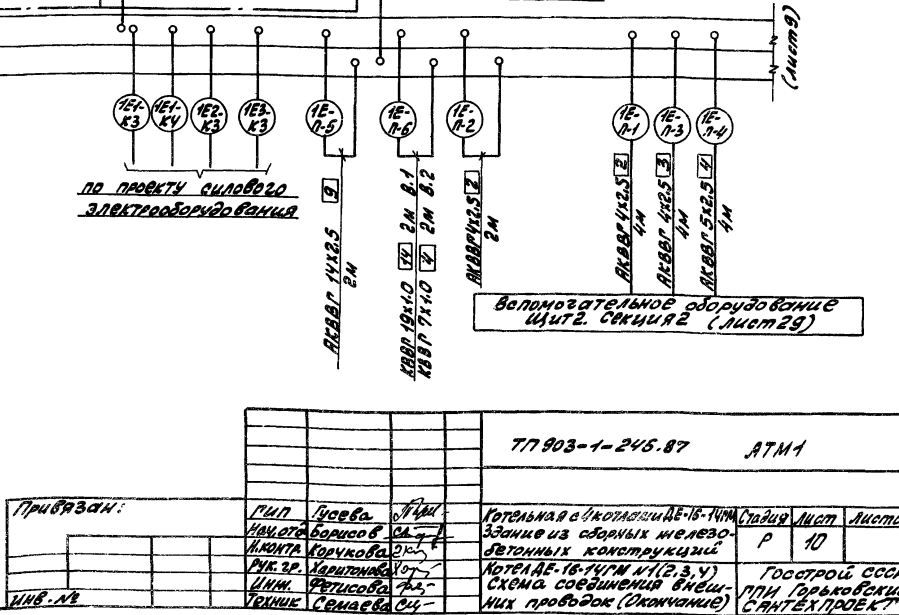 (лист 9)
1Е1-К3
1Е1-К4
1Е2-К3
1Е3-К3
1Е-Л-5
1Е-Л-6
1Е-Л-2
1Е-Л-1
1Е-Л-3
1Е-Л-4
по проекту силового
электрооборудования
АКВВГ 14х2.5 9
2м
КВВГ 19х1.0 14 2м в.1
КВВГ 7х1.0 4 2м в.2
АКВВГ 4х2.5 2
2м
АКВВГ 4х2.5 2
4м
АКВВГ 4х2.5 3
4м
АКВВГ 5х2.5 4
4м
Вспомогательное оборудование
Щит 2. Секция 2 (лист 29)
ТП 903-1-246.87 АТМ1
Привязан:
Инв. №
ГИП Гусева
Нач.отд Борисов
Н.контр Корчкова
Рук. гр. Харитонова
Инж. Фетисова
Техник Семаева
Котельная с 4 котлами ДЕ-16-14ГМ
Здание из сборных железо-
бетонных конструкций
Котел ДЕ-16-14ГМ №1(2,3,4)
Схема соединения внеш-
них проводок (Окончание)
Стадия Лист Листо
Р 10
Госстрой ССС
ГПИ Горьковски
САНТЕХПРОЕКТ